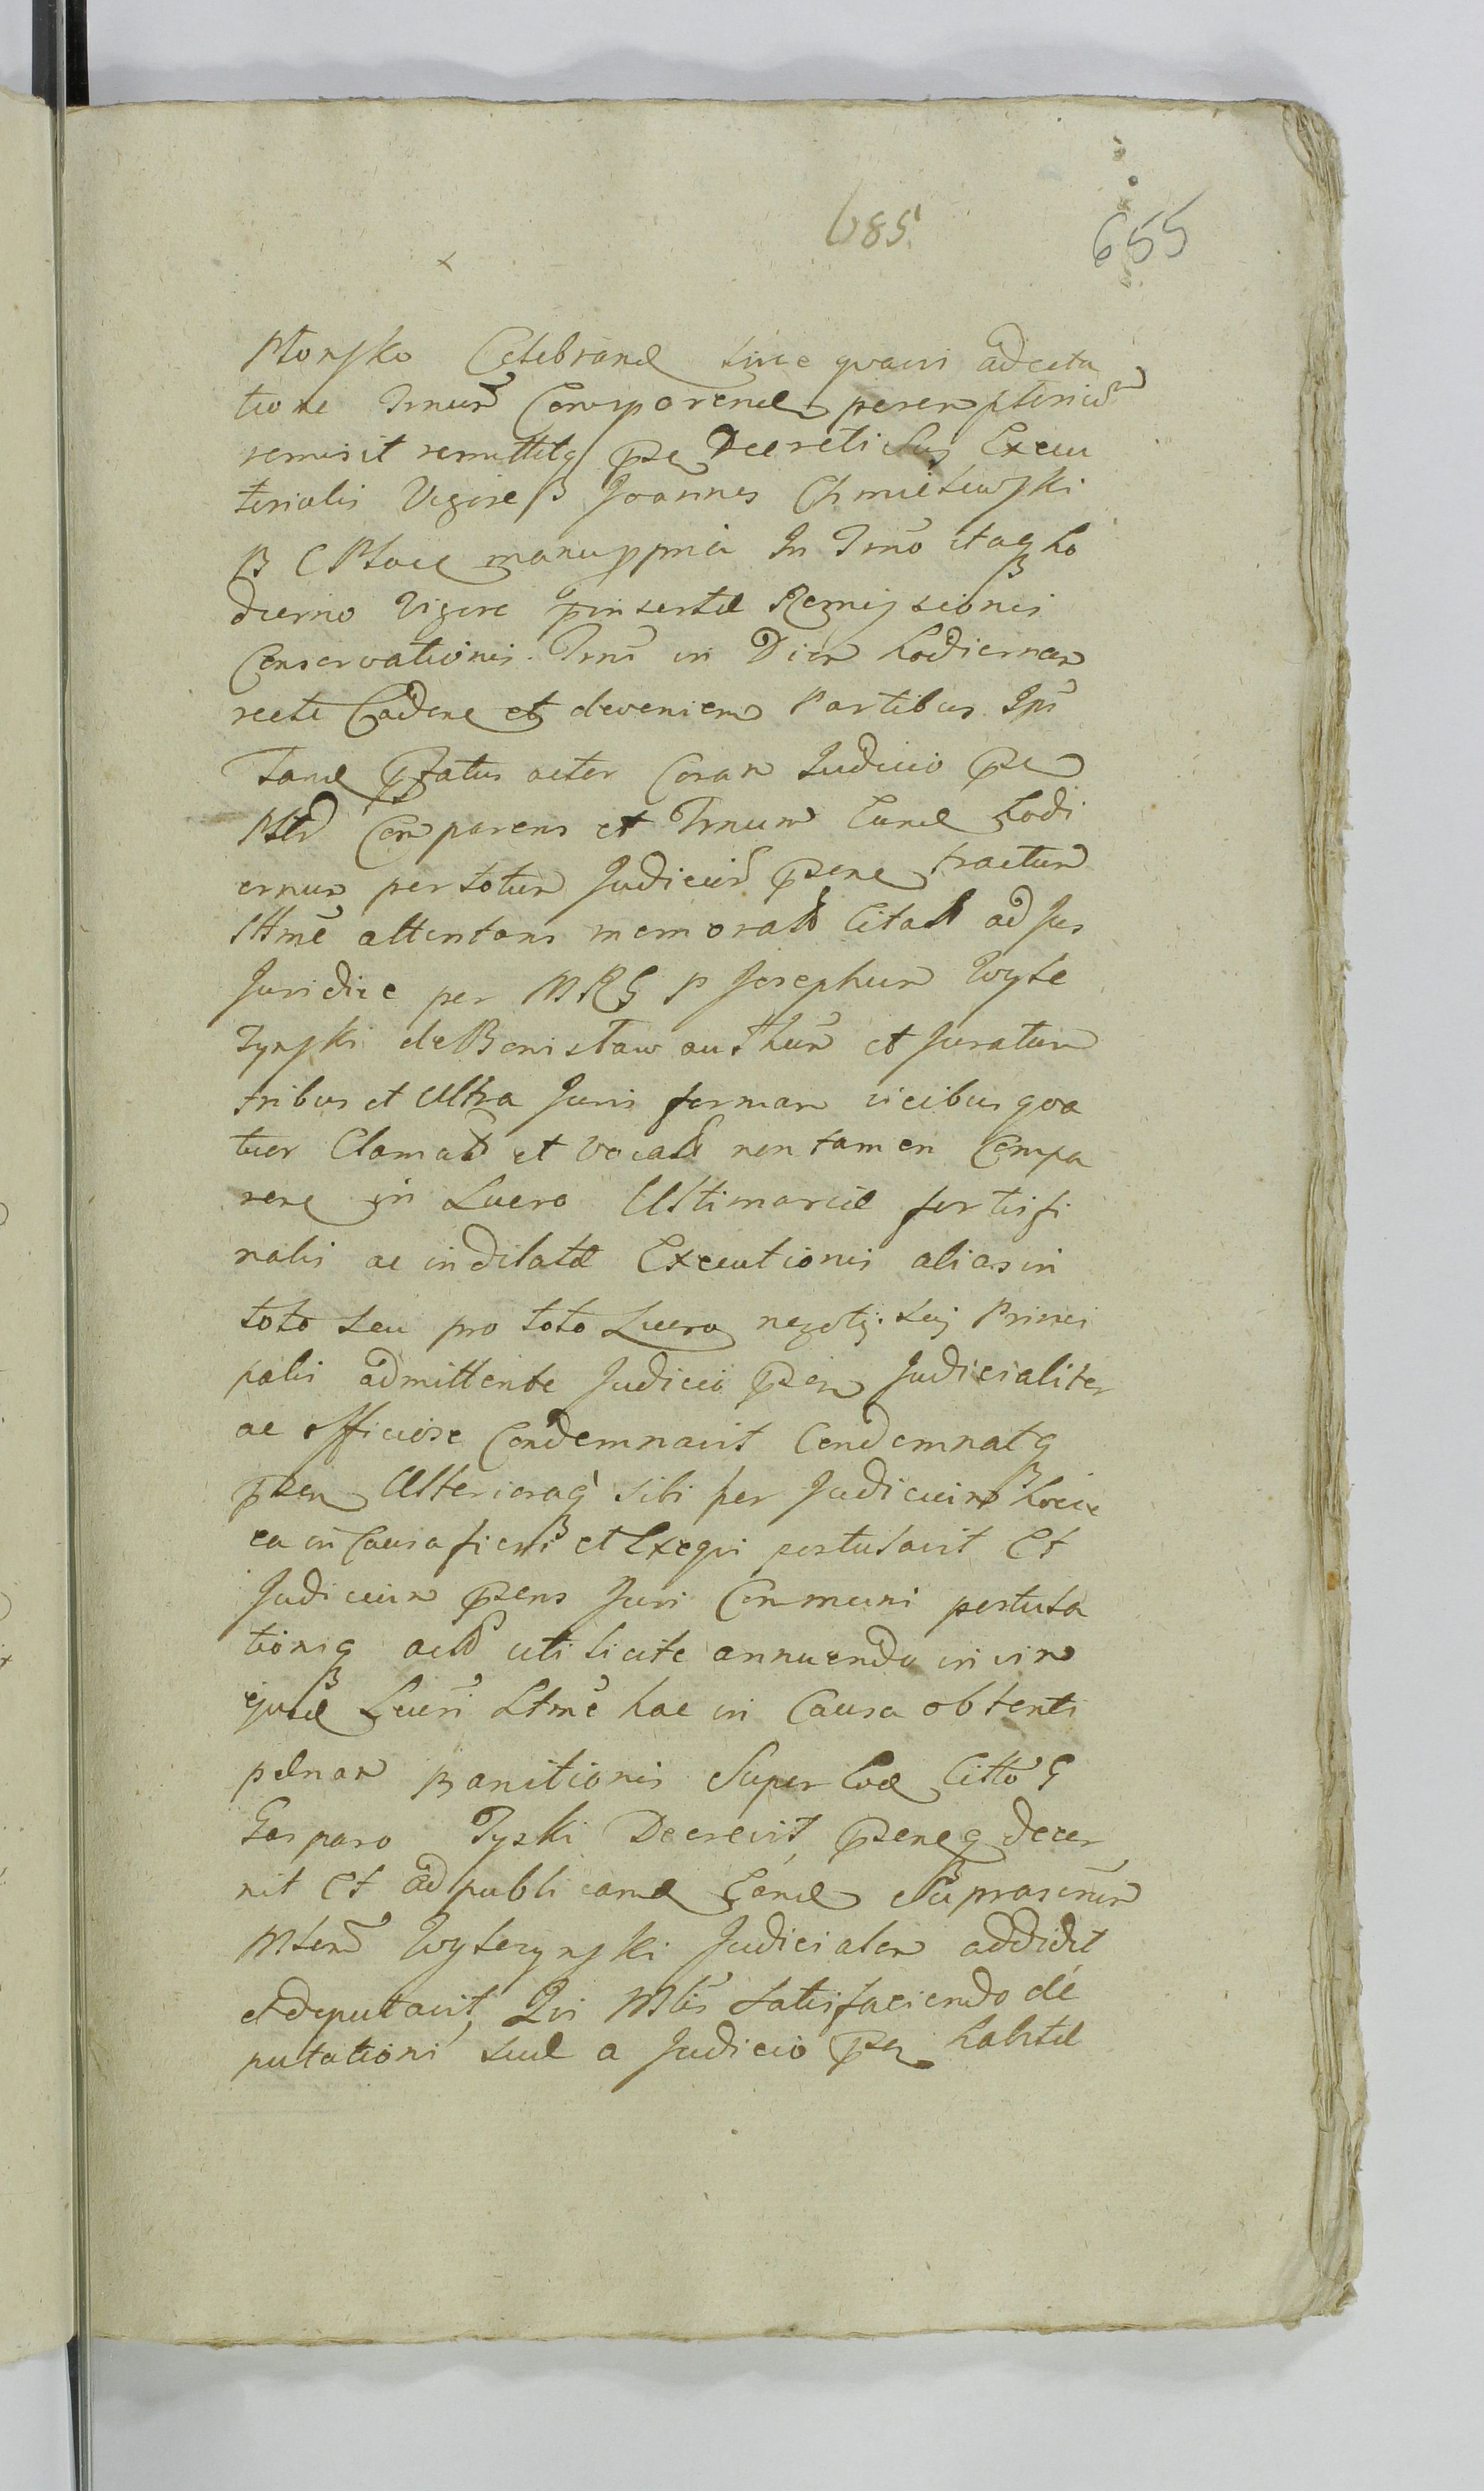 685.
655
Płonsko Celebrand sive quavis adcita
tione Trnum Comparend peremptorium
remisit remittitq pse Decreti Sui Execu
torialis Vigore Joannes Chmielewski
B C Ploce manu ppria In Trno itaq ho
dierno Vigore pinsertæ Remissionis
Conservationis Trni in Diem hodiernam
recte Caden et devenien Partibus Ips
Tand pfatus actor Coram Judicio pse
Mtd Comparens et Trnum Eund hodi
ernum per totum Judicium psens tractum
Ittme attentans memorat Citat ad Jus
Juridice per MRG P Josephum Wyle
zynski de Benistaw authum et Juratum
tribus et Ultra Juris formam vicibus qua
tuor Clamat et vocat non tamen Compa
ren in Lucro Ultimariæ fortis fi
nalis ac indilatæ Executionis alias in
toto seu pro toto Lucro negotij sui Princi
palis admittente Judicio psen Judicialiter
ac officiose Condemnavit Condemnatq
psen Ulterioraq sibi per Judicium hocce
ea in Causa fieri et Exequi postulavit Et
Judicium psens Juri Communi postula
tioniq actor uti licite annuendo in vim
ejusd Lucri Ittme hac in Causa obtenti
pænam Banitionis Super Eod Citto G
Gasparo Tyski Decrevit pseneq decer
nit Et ad publicand Eand Suprascrium
Mtem Wylezynski Judicialem addidit
et deputavit, Qui Mtis satisfaciendo de
putationi suæ a Judicio psen habitæ